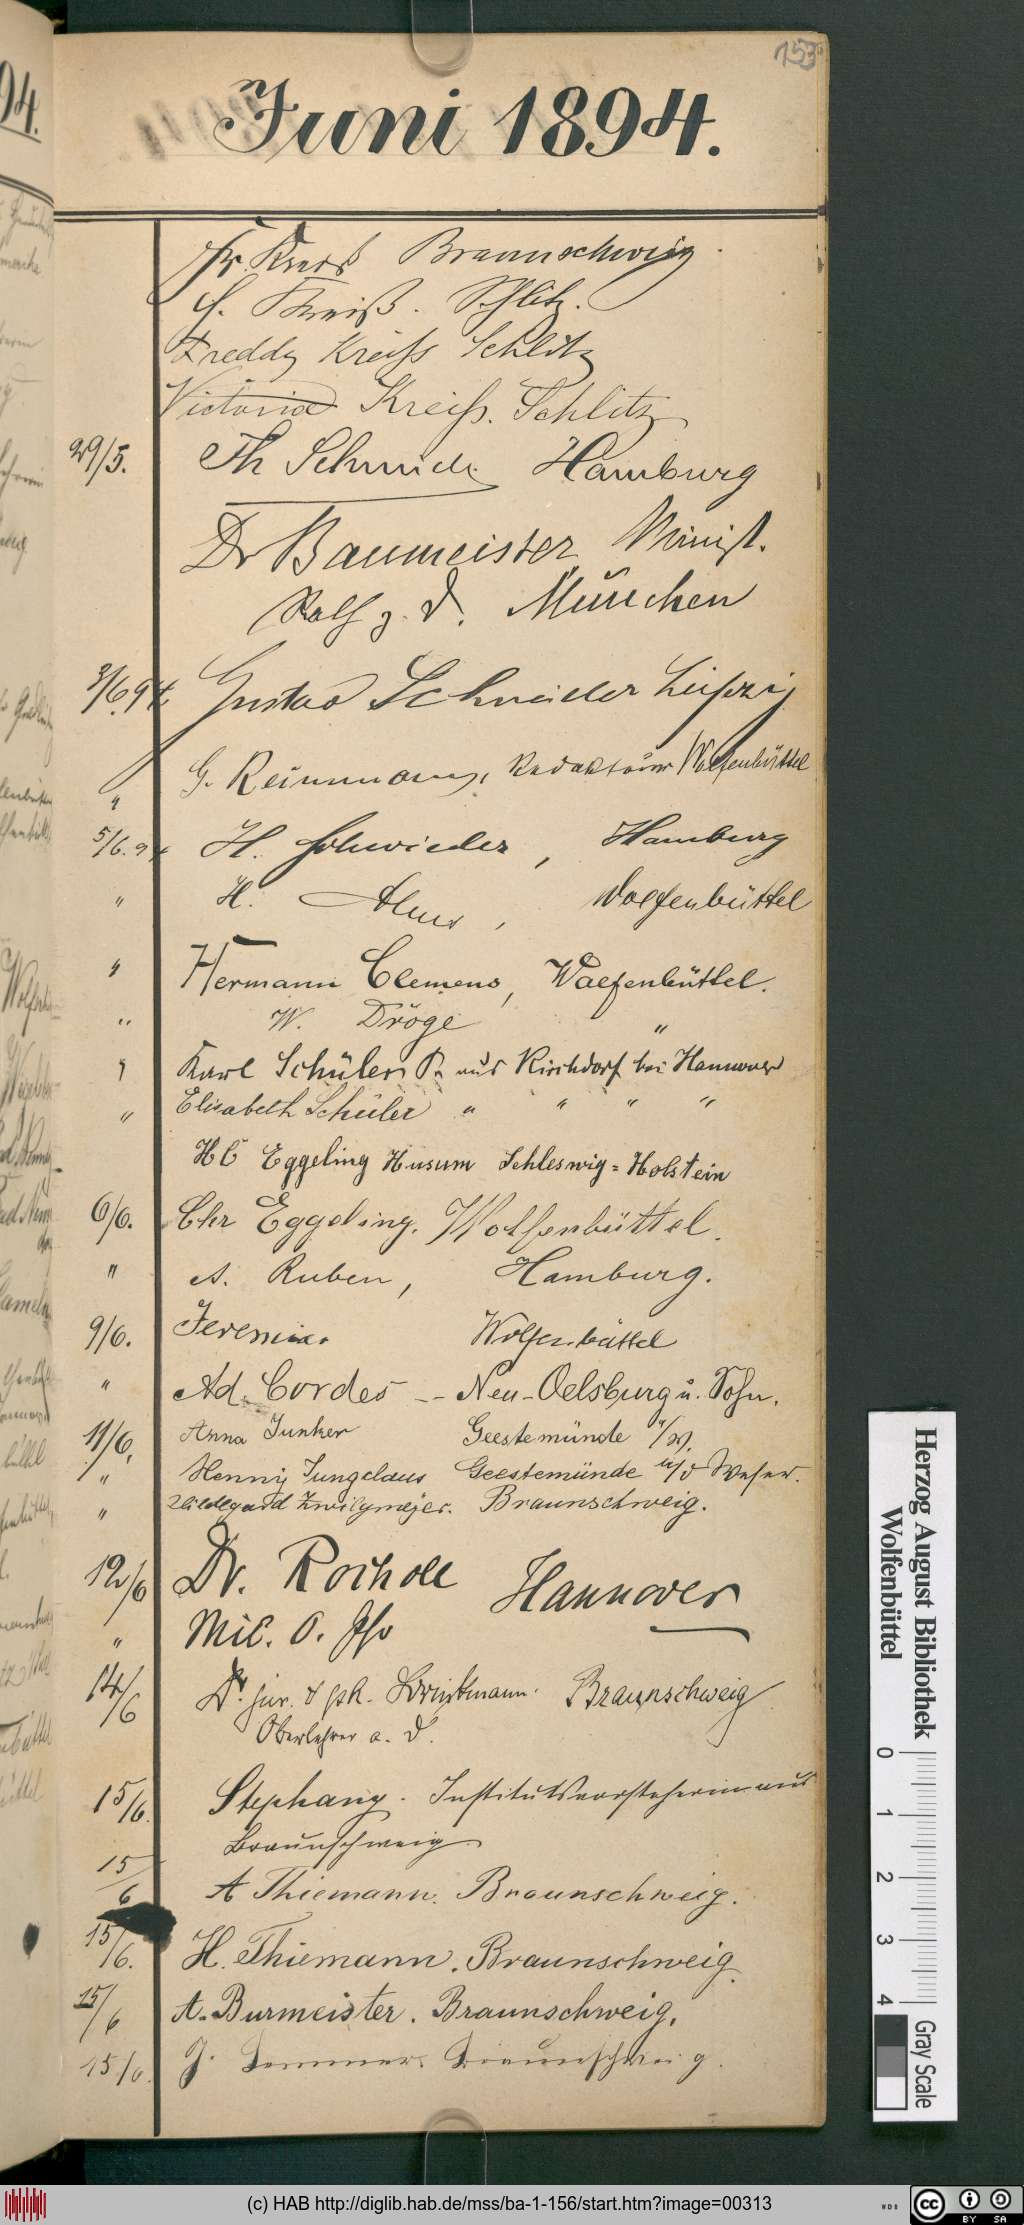 94.
153
Juni 1894.
Fr. Kreiß Braunschweig.
Kreiß. Schlitz.
Freddy Kreiss Schlitz
Victoria Kreiss. Schlitz
29/5. Th Schmidt Hamburg
Dr Baumeister Minist.
z. D. München
3/6.94 Gustav Schneider Leipzig
" G. Reinmann, Redakteur Wolfenbüttel
5/6.94 H. Schwieder, Hamburg
" H. Wolfenbüttel
" Hermann Clemens, Wolfenbüttel.
" W. Dröge "
" Karl Schüler P. aus Kirchdorf bei Hannover
" Elisabeth Schüler " " " "
HC Eggeling Husum Schleswig=Holstein
6/6. Chr Eggeling. Wolfenbüttel.
" A. Ruben, Hamburg.
9/6. Wolfenbüttel
" Ad. Cordes – Neu-Oelsburg u. Sohn.
11/6. Anna Junker Geestemünde a/W.
" Henny Jungclaus Geestemünde a/d Weser.
" Hildegard Zwilgmejer. Braunschweig.
12/6 Dr. Rocholl Hannover
" Mil. O. Pfr
14/6 Dr. jur. & ph. Brinkmann. Braunschweig
Oberlehrer a. D.
15/6. Stephany. Institutsvorsteherin aus
Braunschweig
15/6 A Thiemann. Braunschweig.
15/6. H. Thiemann. Braunschweig.
15/6 A. Burmeister. Braunschweig.
15/6. J. Sommer. Braunschweig.
Herzog August Bibliothek
Wolfenbüttel
0 1 2 3 4
Gray Scale
(c) HAB http://diglib.hab.de/mss/ba-1-156/start.htm?image=00313
WDB
cc BY SA